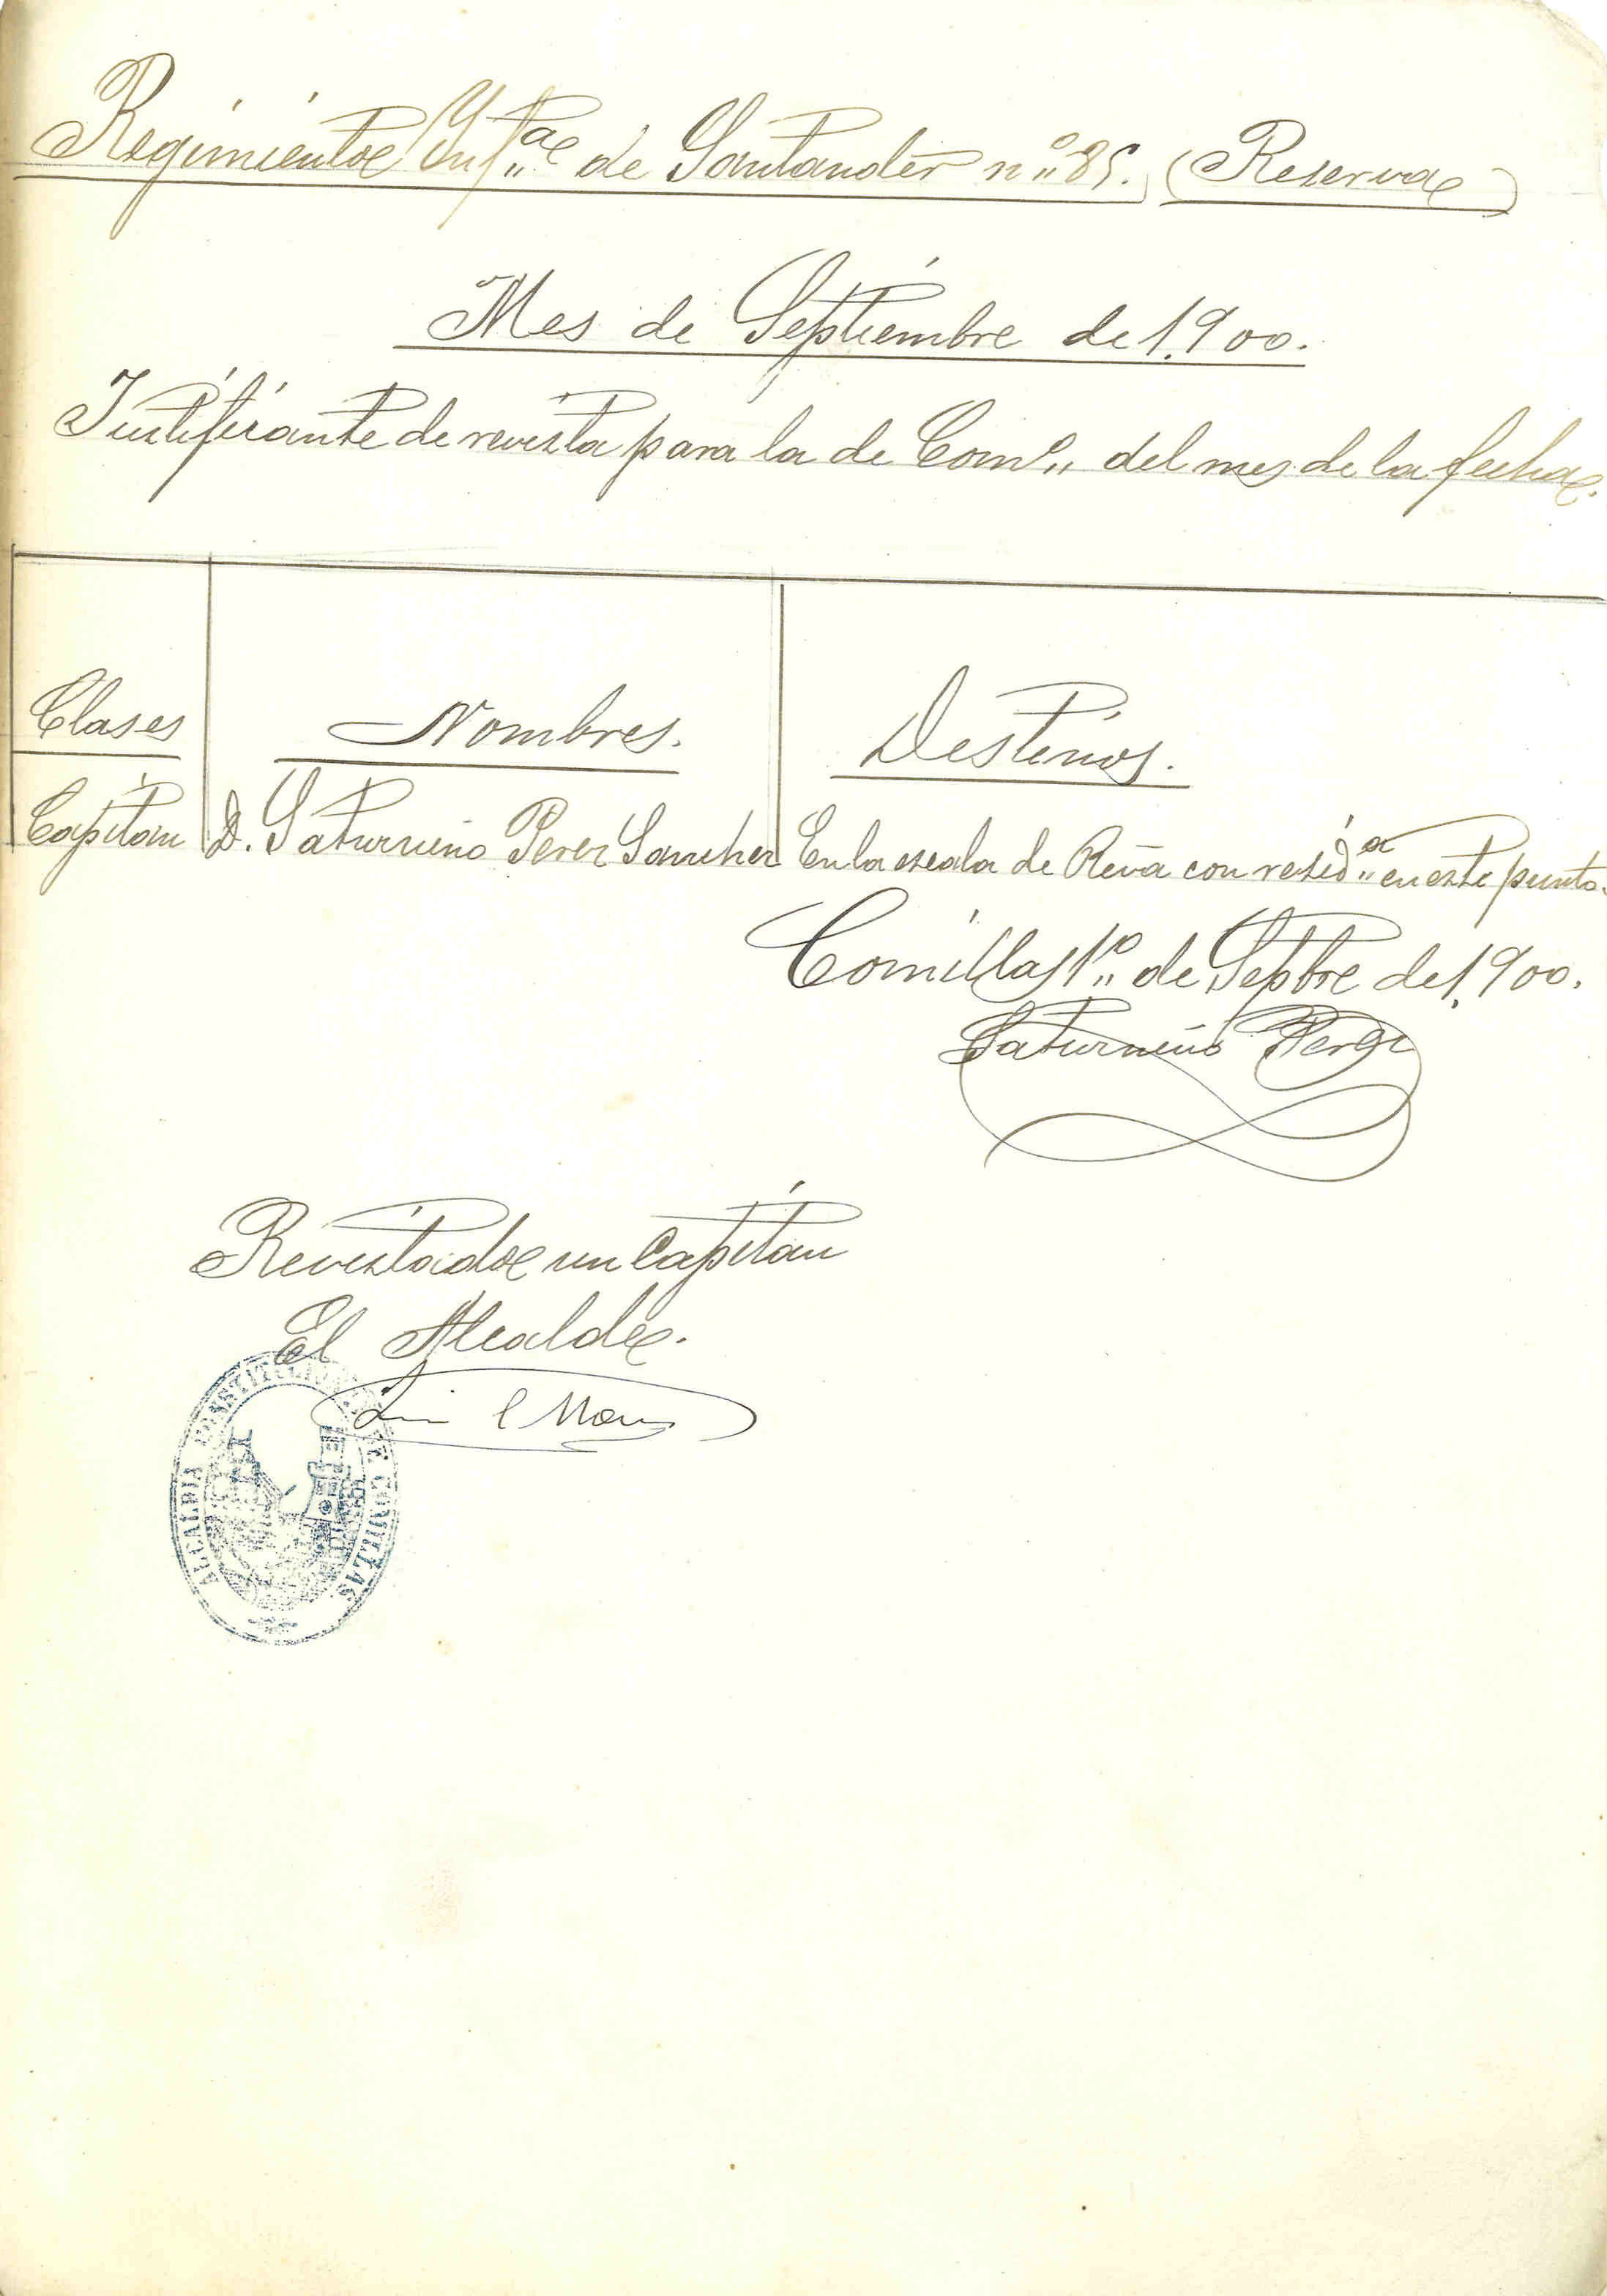 Regimiento Ynf.ª de Santander nº 85. (Reserva)
Mes de Septiembre de 1.900.
Justificante de revista para la de Comº del mes de la fecha.
Clases Nombres. Destinos.
Capitan D. Saturnino Perez Sanchez En la escala de Rvª con resid.ª en este punto.
Comillas 1º de Septbre de 1.900.
Saturnino Perez
Revistado un Capitan
El Alcalde.
ALCALDIA CONSTITUCIONAL DE COMILLAS